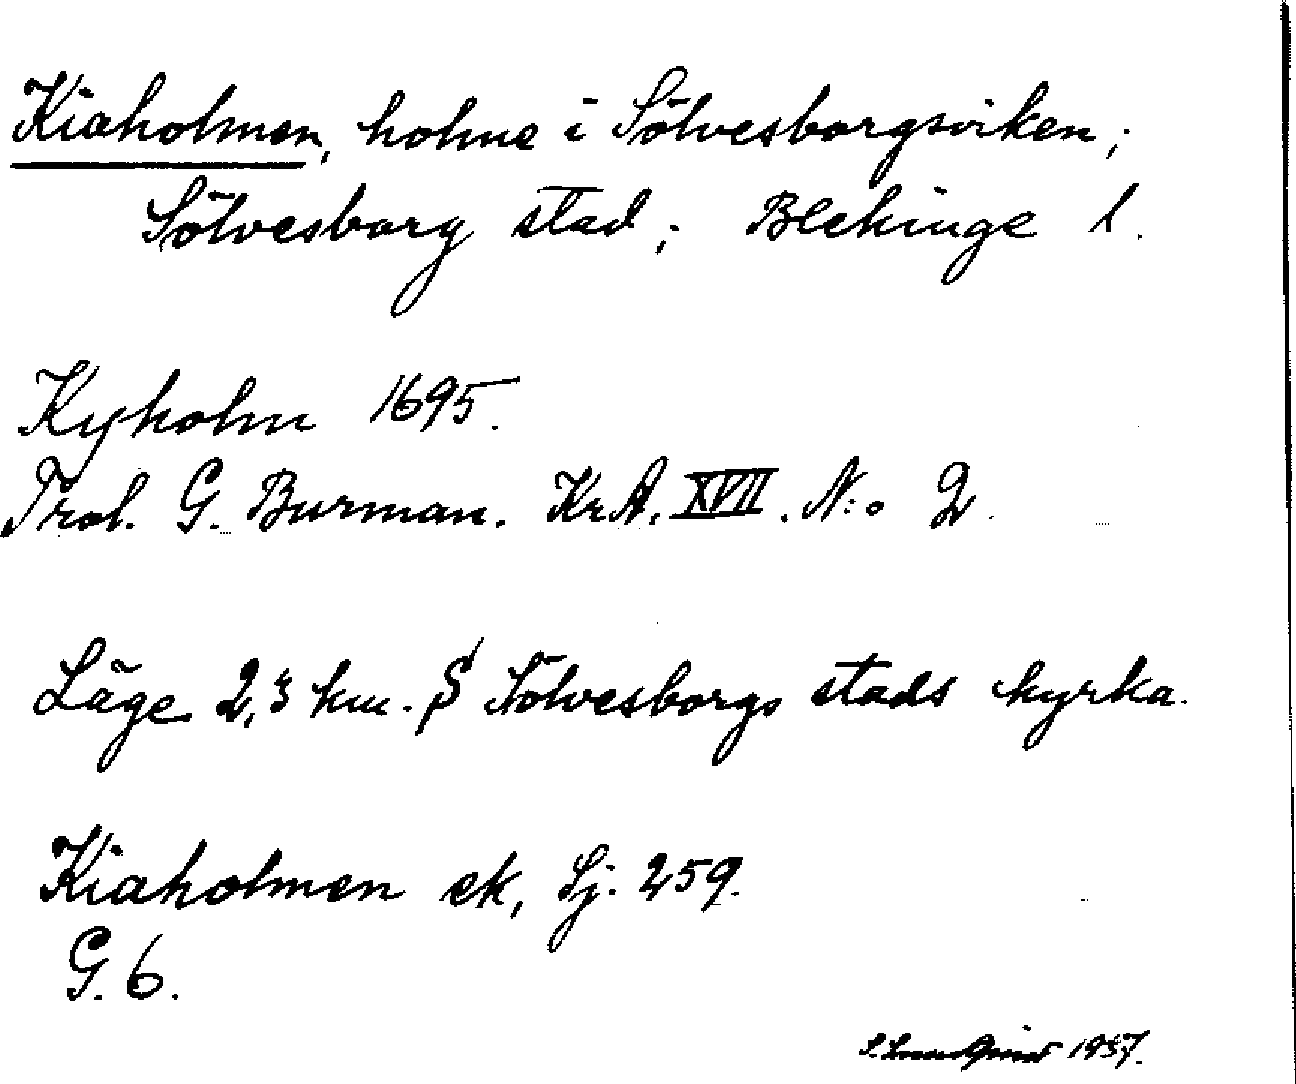 Kiaholmen, holme i Sölvesborgsviken;
Sölvesborg stad; Blekinge l.
Kyholm 1695.
Trol. G. Burman. KrA. XVII. N:o 2.
Läge 2,3 km. S Sölvesborgs stads kyrka.
Kiaholmen ek, Sj. 259.
G. 6.
1937.